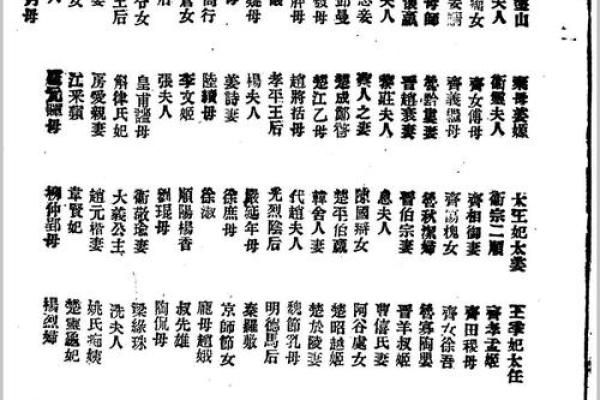 塗山
夫人
女
母師
夫人
懷嬴
鄧曼
母
行
女
后
女
母
棄母姜嫄
衛靈夫人
齊女傅母
齊義繼母
魯黔婁妻
晉趙衰妻
黎莊夫人
蔡人之妻
楚成鄭瞀
楚江乙母
趙將括母
孝平王后
楊夫人
姜詩妻
陸續母
李文姬
張夫人
皇甫謐母
斛律氏妃
房愛親妻
江采蘋
母
太王妃太姜
衛宗二順
齊相御妻
齊傷槐女
魯秋潔婦
晉伯宗妻
息夫人
陳國辯女
楚平伯嬴
韓舍人妻
代趙夫人
光烈陰后
嚴延年母
徐庶母
徐淑
順陽楊香
劉琨母
衛敬瑜妻
大義公主
趙元楷妻
韋賢妃
柳仲郢母
王季妃太任
齊孝孟姬
齊田稷母
齊女徐吾
魯寡陶嬰
晉羊叔姬
曹僖氏妻
阿谷處女
楚昭越姬
楚於陵妻
魏節乳母
明德馬后
秦羅敷
京師節女
龐母趙娥
叔先雄
陶侃母
梁綠珠
冼夫人
姚氏痴姨
楚靈龜妃
楊烈婦